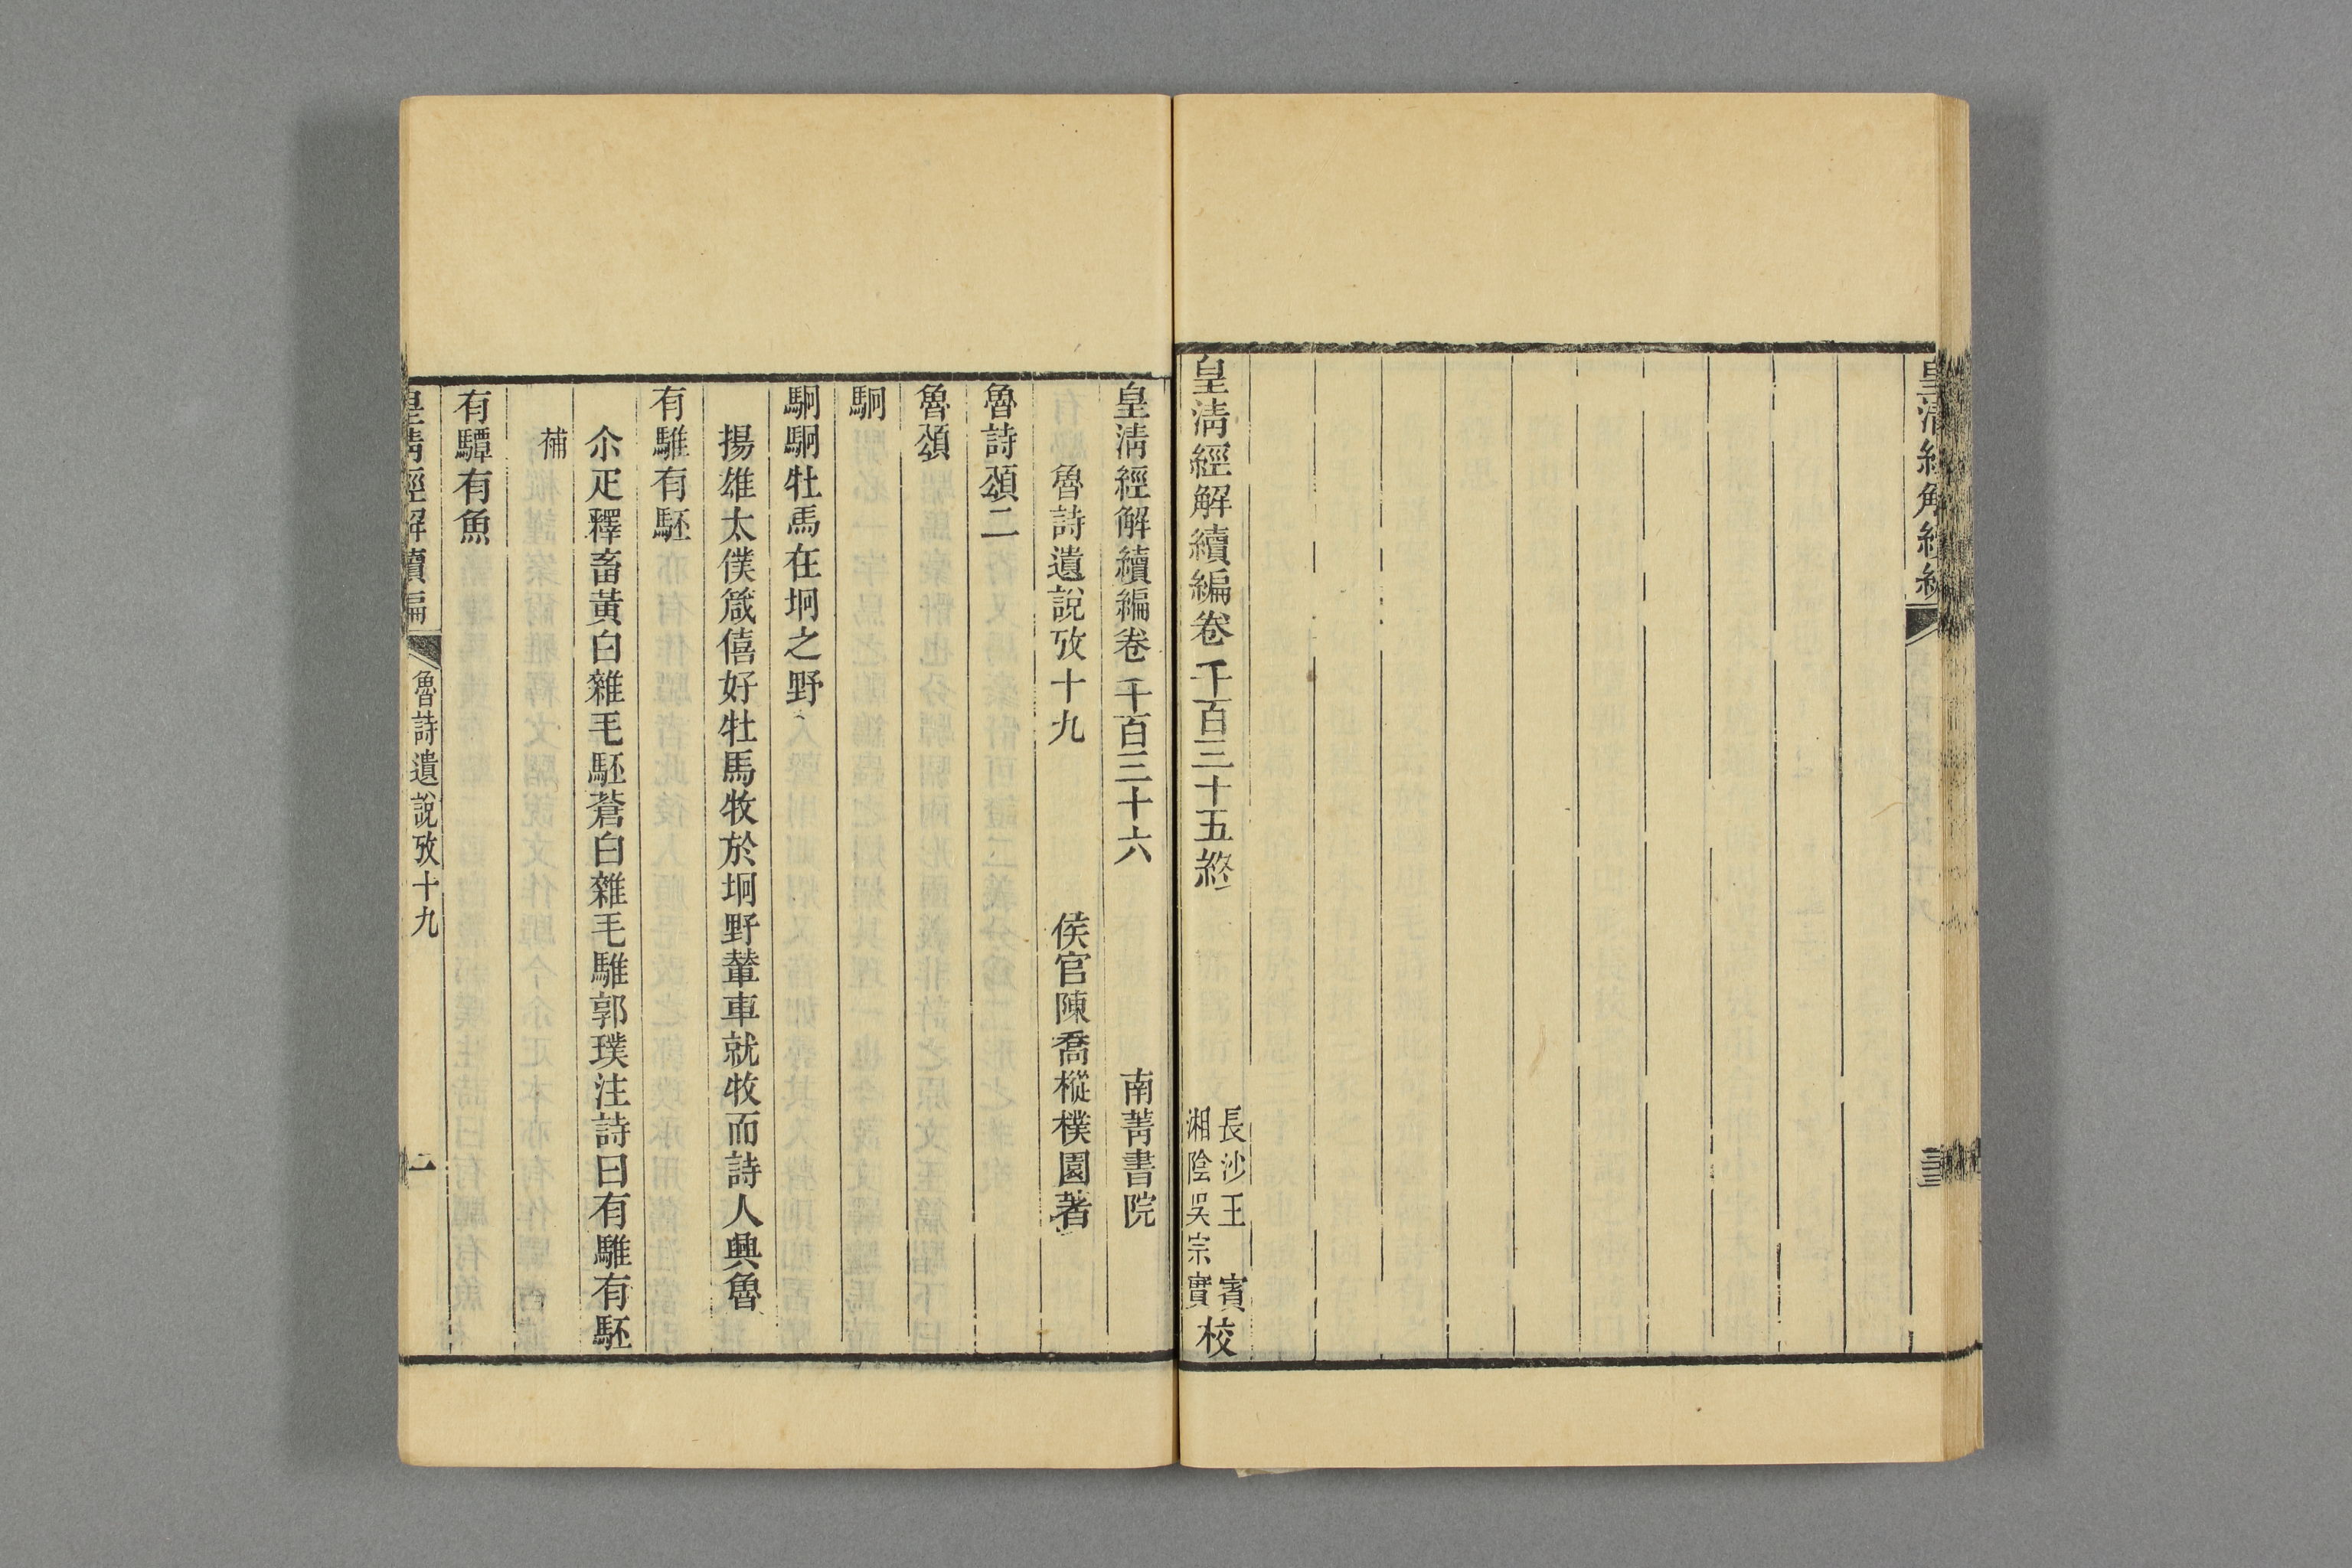 皇清經解續編卷千百三十五終
長沙王 賓
湘陰吳宗實
校
皇清經解續編卷千百三十六 南菁書院
魯詩遺說攷十九 侯官陳喬樅樸園著
魯詩頌二
魯頌
駉
駉駉牡馬在坰之野
揚雄太僕箴僖好牡馬牧於坰野輦車就牧而詩人興魯
有騅有駓
尒疋釋畜黃白雜毛駓蒼白雜毛騅郭璞注詩曰有騅有駓
補
有驔有魚
皇清經解續編 魯詩遺說攷十九 一